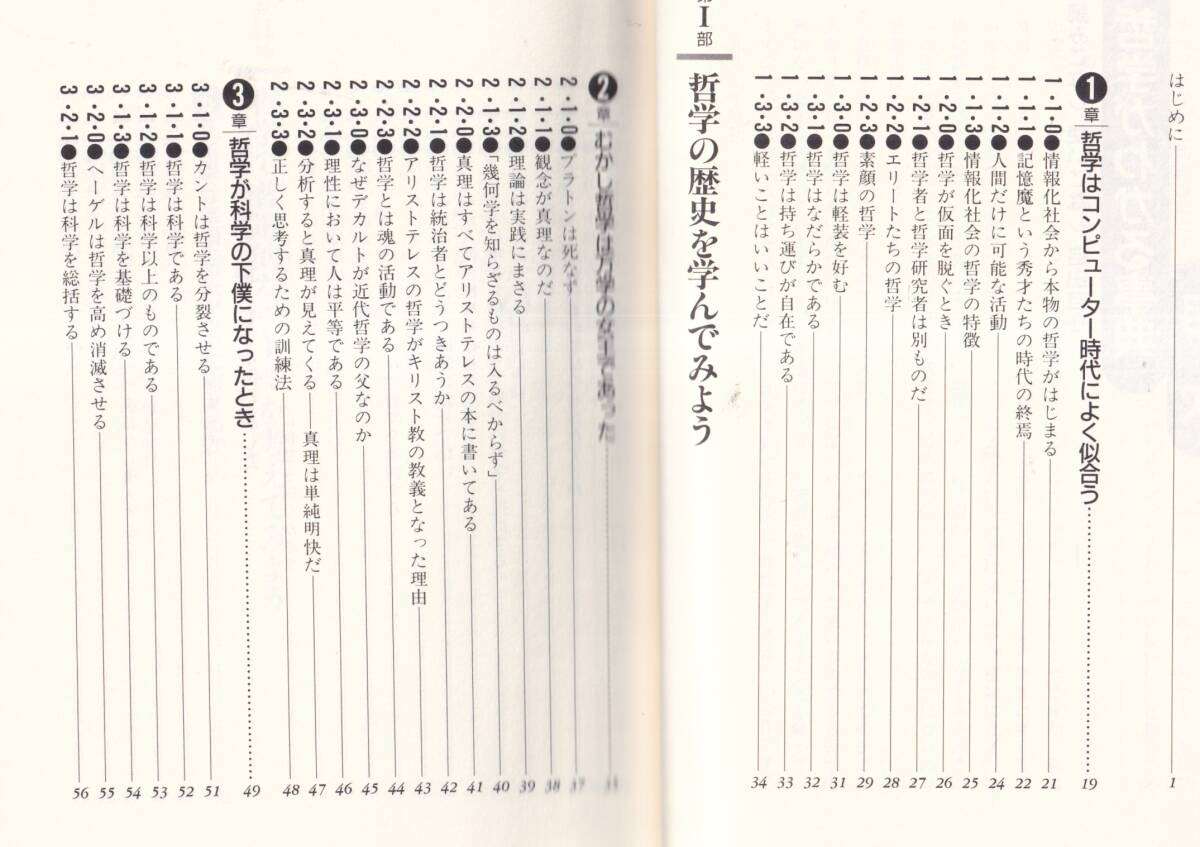 はじめに 1
第I部 哲学の歴史を学んでみよう
1章 哲学はコンピューター時代によく似合う 19
1・1・0●情報化社会から本物の哲学がはじまる 21
1・1・1●記憶魔という秀才たちの時代の終焉 22
1・1・2●人間だけに可能な活動 24
1・1・3●情報化社会の哲学の特徴 25
1・2・0●哲学が仮面を脱ぐとき 26
1・2・1●哲学者と哲学研究者は別ものだ 27
1・2・2●エリートたちの哲学 28
1・2・3●素顔の哲学 29
1・3・0●哲学は軽装を好む 31
1・3・1●哲学はなだらかである 32
1・3・2●哲学は持ち運びが自在である 33
1・3・3●軽いことはいいことだ 34
2章 むかし哲学は万学の女王であった
2・1・0●プラトンは死なず 37
2・1・1●観念が真理なのだ 38
2・1・2●理論は実践にまさる 39
2・1・3●「幾何学を知らざるものは入るべからず」 40
2・2・0●真理はすべてアリストテレスの本に書いてある 41
2・2・1●哲学は統治者とどうつきあうか 42
2・2・2●アリストテレスの哲学がキリスト教の教義となった理由 43
2・2・3●哲学とは魂の活動である 44
2・3・0●なぜデカルトが近代哲学の父なのか 45
2・3・1●理性において人は平等である 46
2・3・2●分析すると真理が見えてくる──真理は単純明快だ 47
2・3・3●正しく思考するための訓練法 48
3章 哲学が科学の下僕になったとき 49
3・1・0●カントは哲学を分裂させる 51
3・1・1●哲学は科学である 52
3・1・2●哲学は科学以上のものである 53
3・1・3●哲学は科学を基礎づける 54
3・2・0●ヘーゲルは哲学を高め消滅させる 55
3・2・1●哲学は科学を総括する 56